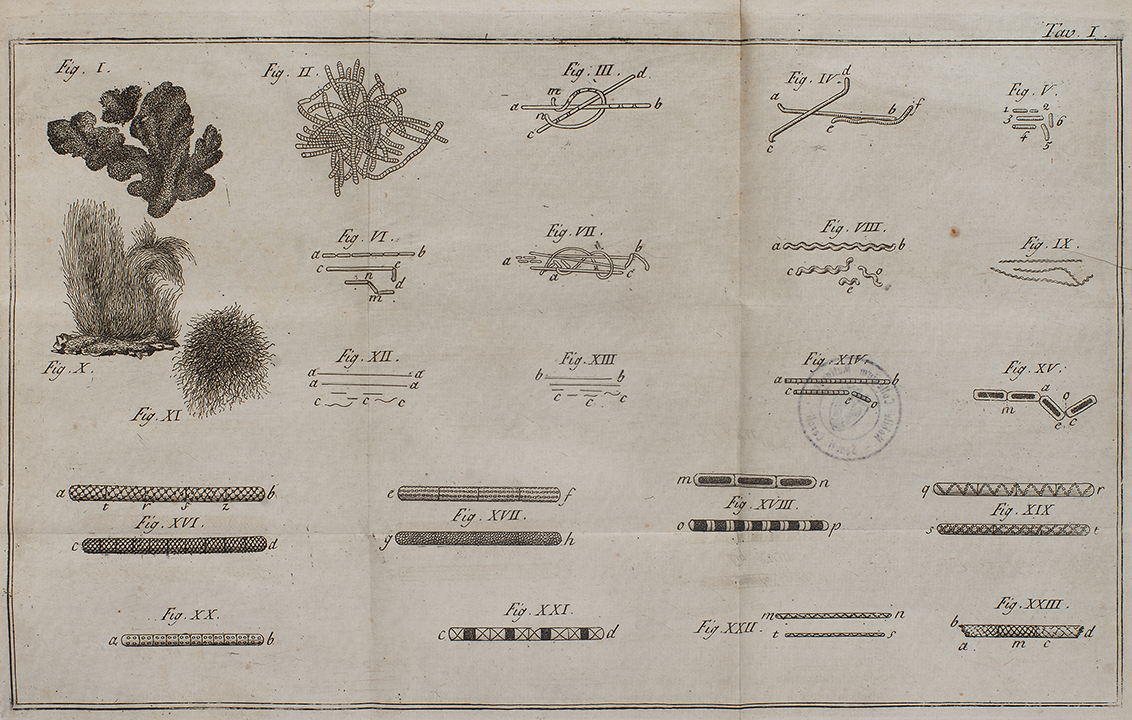 Tav. I.
Fig. I.
Fig. II
Fig. III
Fig. IV.
Fig. V.
a
m
n
c
d.
b
a
d
c
b
f
e
1 2
3 6
4
5
Fig. VI
a b
c c
n d
m
Fig. VII.
a b
c a c
Fig. VIII.
a b
c o
e
Fig. IX.
Fig. X.
Fig. XI
Fig. XII.
a a
a a
c c c
Fig. XIII
b b
c c c
Fig. XIV
a b
c e o
Fig. XV.
a
o
m
e c
a b
t r s z
Fig. XVI.
c d
e f
Fig. XVII.
g h
m n
Fig. XVIII
o p
q r
Fig. XIX
s t
Fig. XX.
a b
Fig. XXI
c d
Fig. XXII
m n
t s
Fig. XXIII.
b d
a. m c